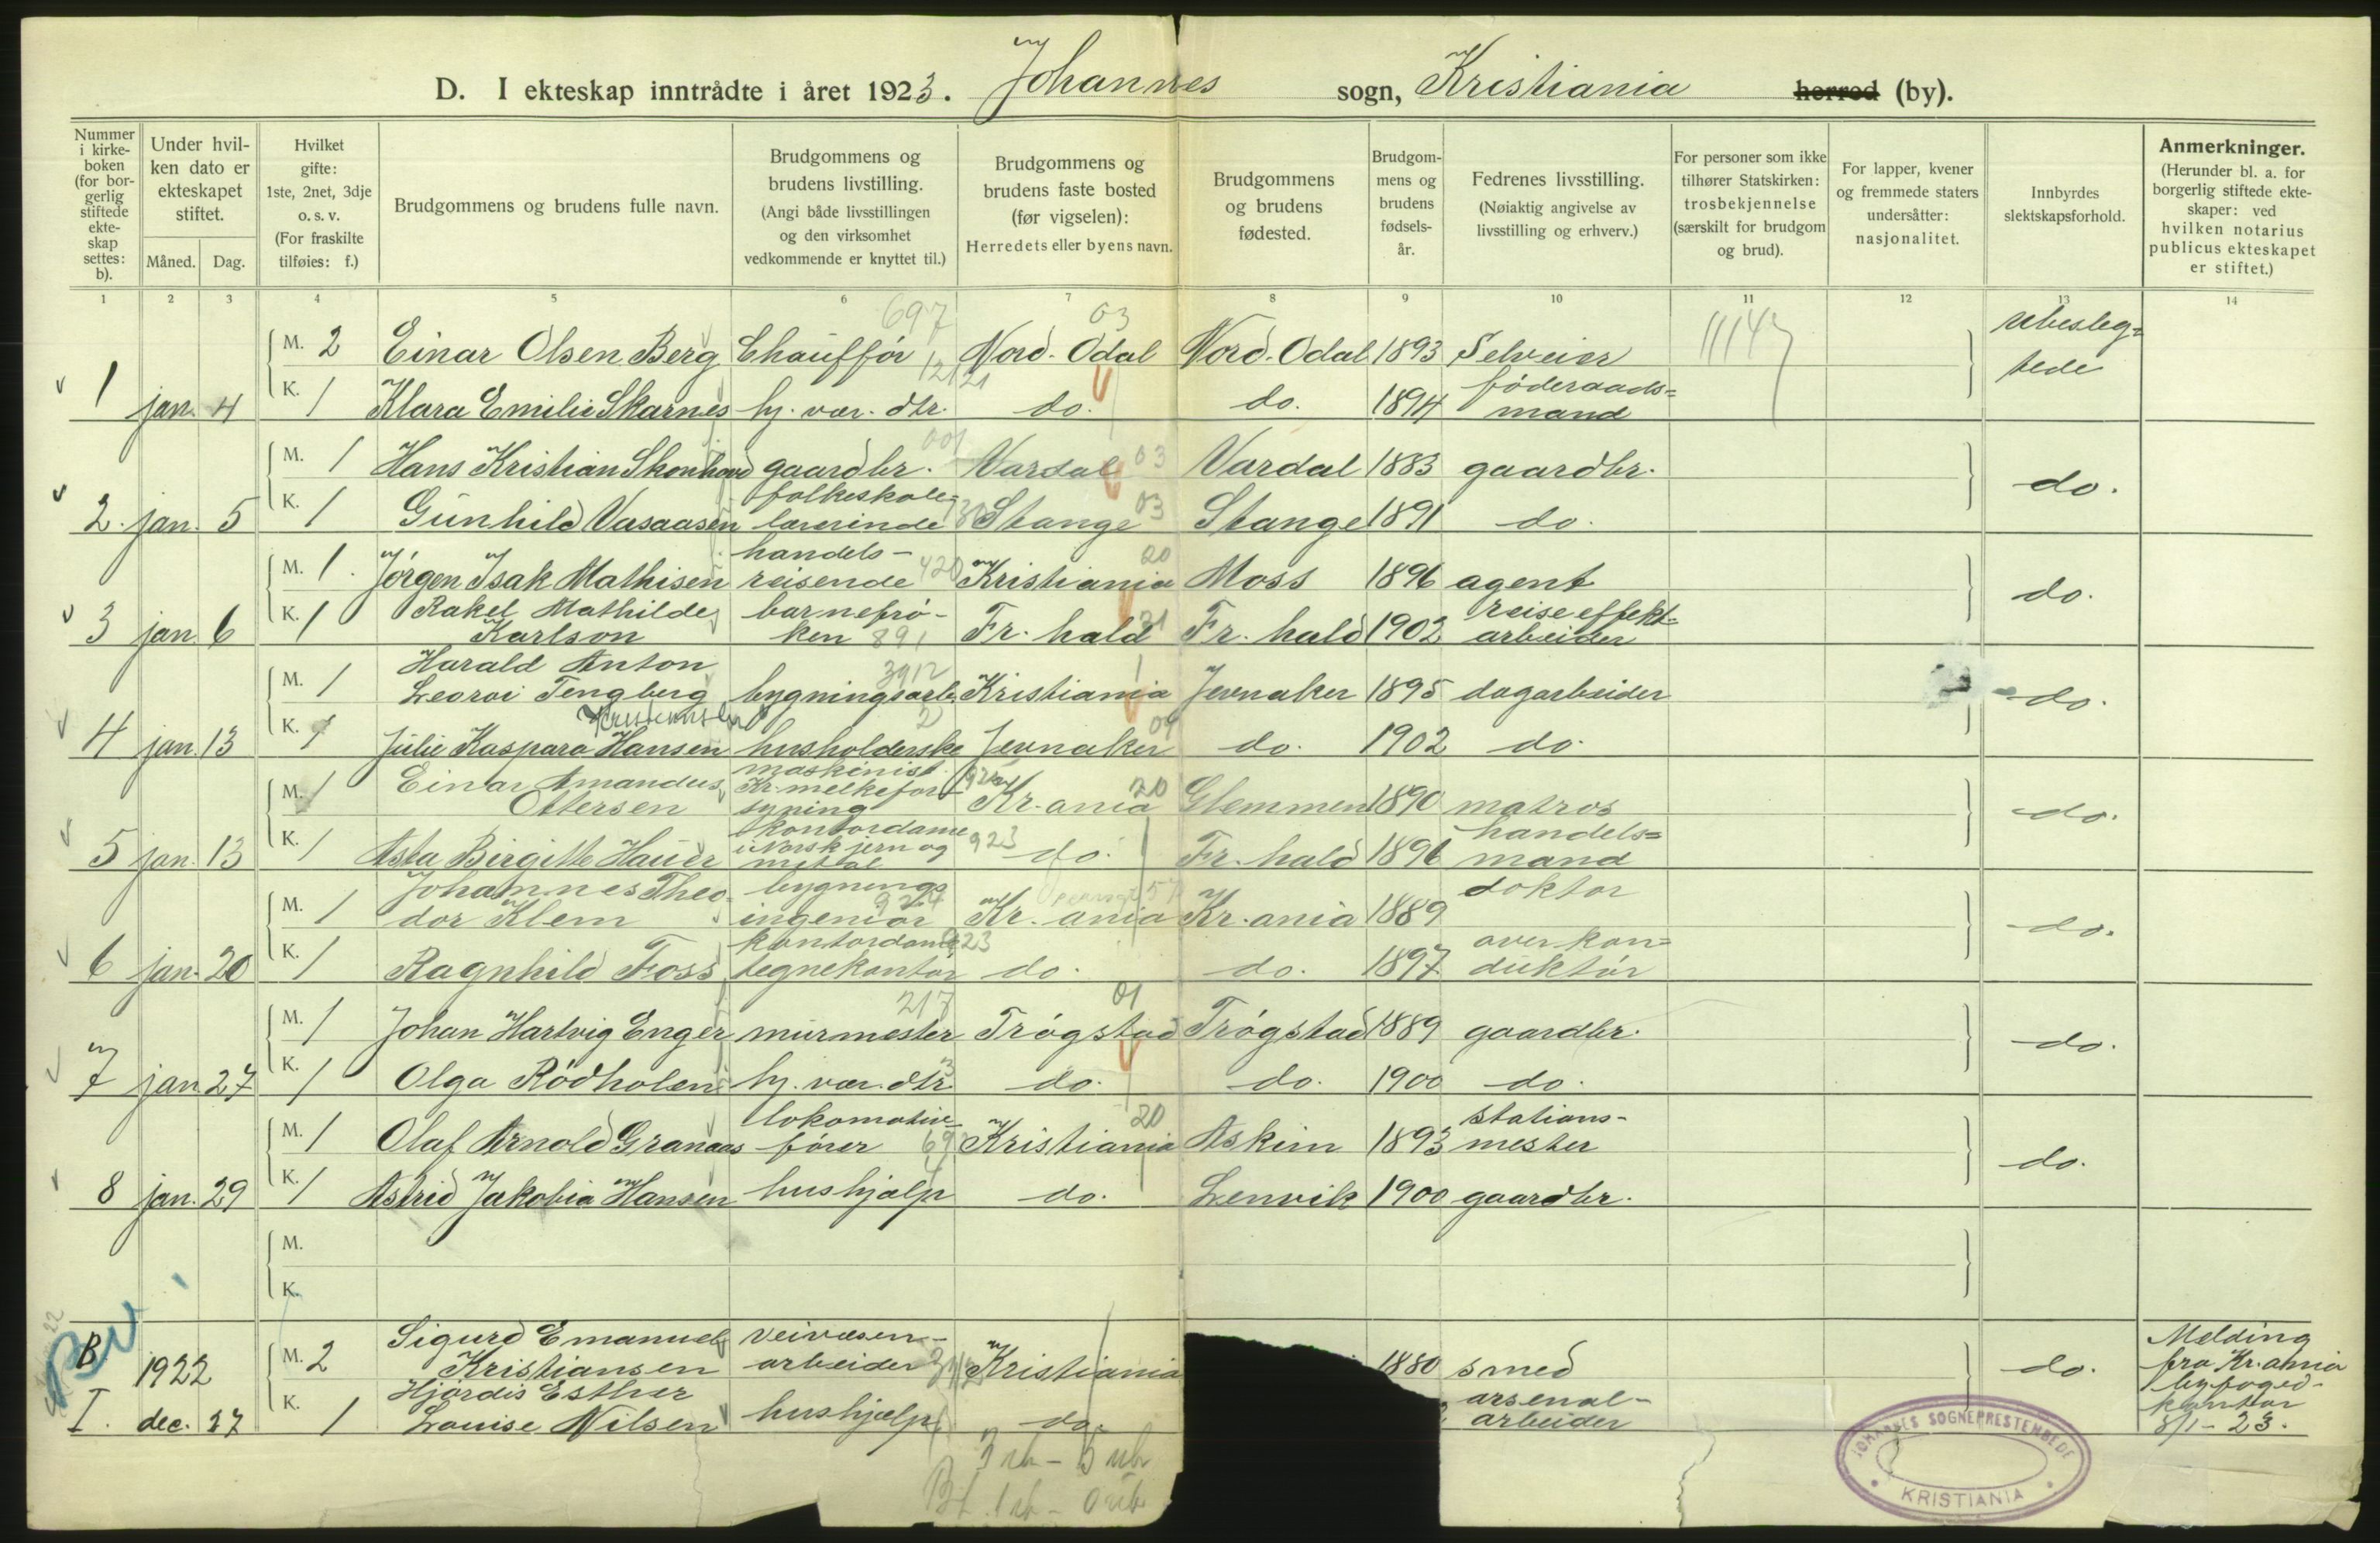 D. I ekteskap inntrådte i året 1923. Johannes sogn, Kristiania herred (by).
Nummer i kirke-boken (for bor-gerlig stiftede ekte-skap settes: b).
Under hvil-ken dato er ekteskapet stiftet.
Måned. Dag.
Hvilket gifte: 1ste, 2net, 3dje o. s. v. (For fraskilte tilføies: f.)
Brudgommens og brudens fulle navn.
Brudgommens og brudens livstilling. (Angi både livsstillingen og den virksomhet vedkommende er knyttet til.)
Brudgommens og brudens faste bosted (før vigselen): Herredets eller byens navn.
Brudgommens og brudens fødested.
Brudgom-mens og brudens fødsels-år.
Fedrenes livsstilling. (Nøiaktig angivelse av livsstilling og erhverv.)
For personer som ikke tilhører Statskirken: trosbekjennelse (særskilt for brudgom og brud).
For lapper, kvener og fremmede staters undersåtter: nasjonalitet.
Innbyrdes slektskapsforhold.
Anmerkninger. (Herunder bl. a. for borgerlig stiftede ekte-skaper: ved hvilken notarius publicus ekteskapet er stiftet.)
1 2 3 4 5 6 7 8 9 10 11 12 13 14
697 03
M. 2 Einar Olsen Berg Chauffør Nord-Odal Nord-Odal 1893 Selveier ubesleg=tede
1 jan. 4 K. 1 Klara Emilie Skarnes hj. vær. dtr. do. do. 1894 føderaads=mand
M. 1 Hans Kristian Skonhovd gaardbr. Vardal 03 Vardal 1883 gaardbr. do.
2. jan. 5 K. 1 Gunhild Vasaasen folkeskole-lærerinde Stange 03 Stange 1891 do.
M. 1. Jørgen Isak Mathisen handels-reisende 420 Kristiania 20 Moss 1896 agent do.
3 jan. 6 K. 1 Rakel Mathilde Karlson barnefrø-ken 891 Fr.hald 21 Fr.hald 1902 reiseeffekt-arbeider
M. 1 Harald Anton Leorvi Tengberg bygningsarb. 3912 Kristiania Jevnaker 1895 dagarbeider do.
4 jan. 13 K. 1 Julie Kaspara Hansen husholderske Jevnaker do. 1902 do.
M. 1 Einar Amandus Ottersen maskinist Kr. melkefor-syning Kr.ania 20 Glemmen 1890 matros do.
5 jan. 13 K. 1 Asta Birgitte Hauer kontordame i Norsk jern og metal 923 do. Fr.hald 1896 handels=mand
M. 1 Johannes Theo-dor Klem bygnings ingeniør 924 Kr.ania Kr.ania 1889 doktor do.
6 jan. 20 K. 1 Ragnhild Foss kontordame tegnekontor do. do. 1897 overkon=duktør
M. 1 Johan Hartvig Enger murmester 217 Trøgstad 01 Trøgstad 1889 gaardbr. do.
7 jan. 27 K. 1 Olga Rødholen hj. vær. dtr. do. do. 1900 do.
M. 1 Olaf Arnold Granaas lokomotiv-fører Kristiania 20 Askim 1893 stations-mester do.
8 jan. 29 K. 1 Astrid Jakobia Hansen hushjælp do. Lenvik 1900 gaardbr.
M.
K.
B 1922 M. 2 Sigurd Emanuel Kristiansen veivæsen-arbeider Kristiania 1880 smed do. Melding fra Kr.ania byfoged-kontor 8/1-23.
I. dec. 27 K. 1 Hjørdis Esther Louise Nilsen hushjælp do. arsenal-arbeider
JOHANNES SOGNEPRESTEMBEDE
KRISTIANIA